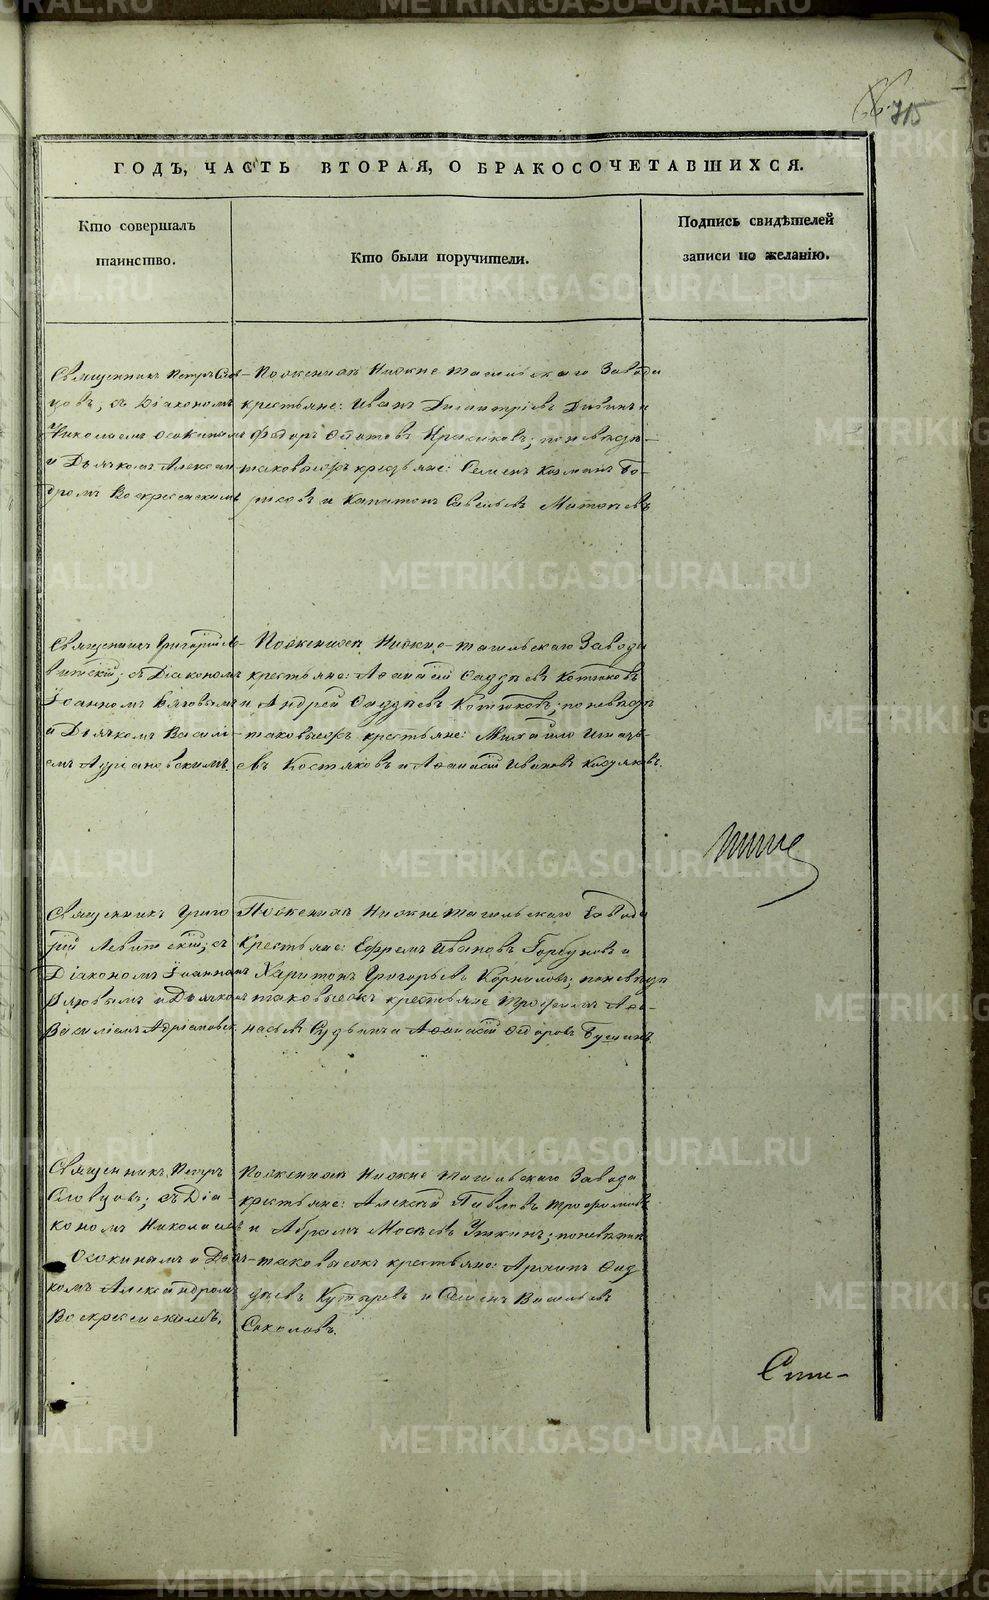 715
ГОДЪ, ЧАСТЬ ВТОРАЯ, О БРАКОСОЧЕТАВШИХСЯ.
Кто совершалъ
таинство.
Кто были поручители.
Подпись свидѣтелей
записи по желанію.
Священникъ Петръ Слов-
цовъ, съ Діакономъ
Николаемъ Осокинымъ
и Дьячкомъ Алексан-
дромъ Воскресенскимъ
По женихѣ Нижне тагильскаго Завода
крестьяне: Иванъ Димитріевъ
Ѳедоръ; по невѣстѣ
таковыежъ крестьяне: Семенъ Козминъ Бо-
риковъ и Капитонъ Савельевъ
Священникъ Григорій Ле-
витскій; съ Діакономъ
Іоанномъ Вяловымъ
и Дьячкомъ Василі-
емъ Адріановскимъ.
По женихѣ Нижне-тагильскаго Завода
крестьяне: Аѳанасій Ѳаддѣевъ
и Андрей Ѳаддѣевъ; по невѣстѣ
таковыежъ крестьяне: Михайло Игнать-
евъ Костяковъ и Аѳанасій Ивановъ
Священникъ Григо
рій Левитскій; съ
Діакономъ Іоанномъ
Вяловымъ и Дьячкомъ
Василіемъ Адріановск
По женихѣ Нижнетагильскаго Завода
Крестьяне: Ефремъ Ивановъ Горбуновъ и
Харитонъ Григорьевъ Корниловъ; по невѣстѣ
таковыежъ крестьяне Трофимъ Аѳа-
насьевъ и Аѳанасій Ѳедоровъ
Священникъ Петръ
Словцовъ; съ Діа-
кономъ Николаемъ
Осокинымъ и Дьяч-
комъ Александромъ
Воскресенскимъ.
По женихѣ Нижне тагильскаго Завода
крестьяне: Алексѣй Павловъ Трофимовъ
и Абрамъ Мосѣевъ Уткинъ; по невѣстѣ
таковыежъ крестьяне: Архипъ Ѳад
дѣевъ и Семенъ Васильевъ
Соколовъ.